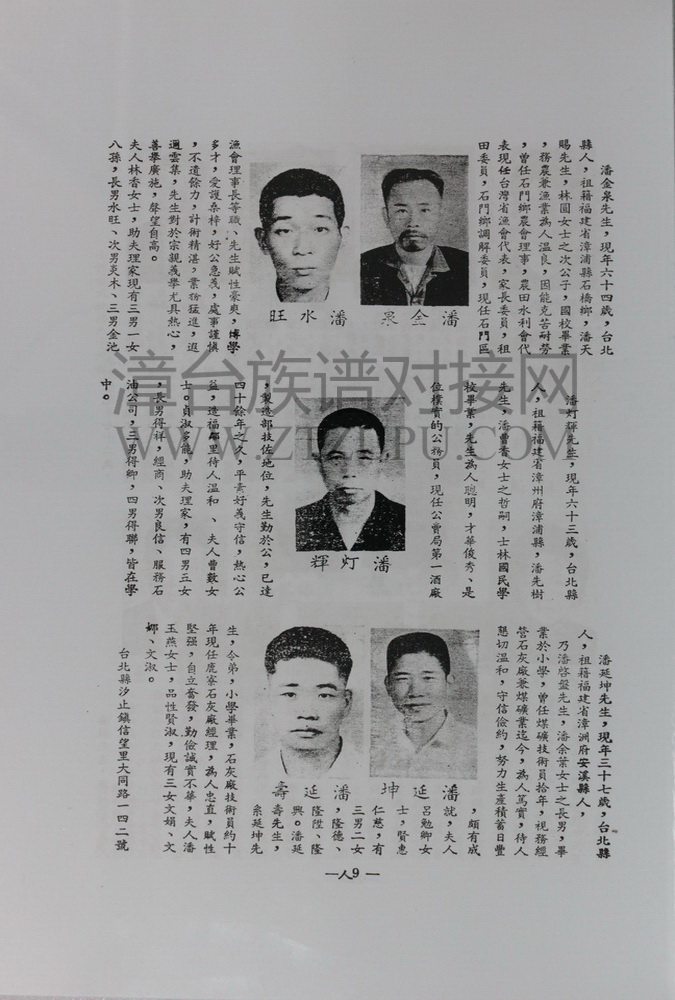 潘金泉先生，現年六十四歲，台北
縣人，祖籍福建省漳浦縣石橋鄉，潘天
賜先生，林圓女士之次公子，國校畢業
，務農兼漁業為人溫良，因能克苦耐勞
，曾任石門鄉農會理事，農田水利會代
表現任台灣省漁會代表，家長委員，租
田委員，石門鄉調解委員，現任石門區
潘金泉
潘水旺
漁會理事長等職、先生賦性豪爽，博學
多才，愛護桑梓，好公急義，處事謹慎
，不遺餘力，計術精湛，業務猛進，遐
邇雲集，先生對於宗親義學尤具熱心，
善舉廣施，聲望自高。
夫人林香女士，助夫理家現有三男一女
八孫，長男水旺、次男炎木、三男金池
潘灯輝先生，現年六十三歲，台北縣
人，祖籍福建省漳州府漳浦縣，潘先樹
先生，潘曹香女士之哲嗣，士林國民學
校畢業，先生為人聰明，才華俊秀、是
位樸實的公務員，現任公賣局第一酒廠
潘灯輝
，製造部技佐地位，先生勤於公，已達
四十餘年之久，平素好義守信，熱心公
益，造福鄉里待人溫和、夫人曹數女
士。貞淑多能，助夫理家，有四男三女
，長男得祥，經商、次男良信、服務石
油公司，三男得卿，四男得聯，皆在學
中。
潘延坤先生，現年三十七歲，台北縣
人，祖籍福建省漳洲府安溪縣人，
乃潘啓盤先生，潘余葉女士之長男，畢
業於小學，曾任煤礦技術員拾年，視務經
營石灰廠兼煤礦業迄今，為人篤實，待人
懇切溫和，守信儉約，努力生產積蓄日豐
潘延坤
潘延壽
，頗有成
就，夫人
呂勉卿女
士，賢惠
仁慈，有
三男二女
，隆德、
隆陞、隆
興。潘延
壽先生，
系延坤先
生，令弟，小學畢業，石灰廠技術員約十
年現任鹿寮石灰廠經理，為人忠直，賦性
堅强，自立奮發，勤儉誠實不華，夫人潘
玉燕女士，品性賢淑，現有三女文娟、文
娜、文淑。
台北縣汐止鎮信望里大同路一四二號
—人9—
漳台族谱对接网
WWW.ZTZUPU.COM